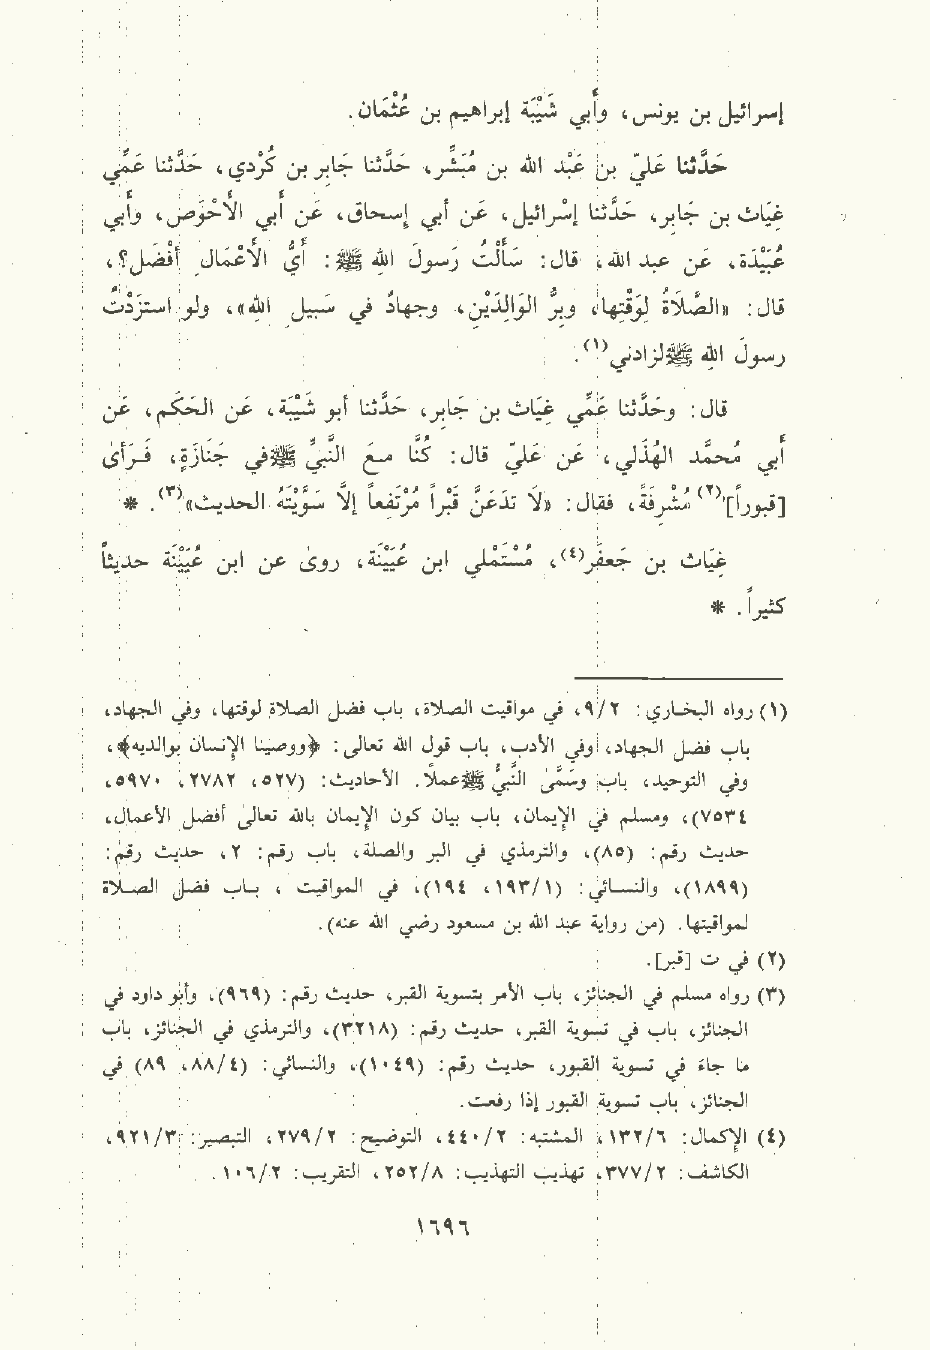 إسرائيل بن يونس، وأَبي شَيْبَة إبراهيم بن عُثْمَان.
حَدَّثنا عَليّ بن عَبْد الله بن مُبَشِّر، حَدَّثنا جَابِر بن كُرْدي، حَدَّثنا عَمِّي
غِيَاث بن جَابِر، حَدَّثنا إسْرائيل، عَن أبي إسحاق، عَن أبي الأَحْوَص، وأَبي
عُبَيْدَة، عَن عبد الله، قال: سَأَلْتُ رَسولَ اللهِ ﷺ: أيُّ الأَعْمَال أَفْضَل؟،
قال: «الصَّلَاةُ لِوَقْتِها، وبِرُّ الوَالِدَيْنِ، وجهادُ في سَبيلِ الله»، ولو استزَدْتُ
رسولَ اللهِ ﷺ لزادني(١).
قال: وحَدَّثنا عَمِّي غِيَاث بن جَابِر، حَدَّثنا أبو شَيْبَة، عَن الحَكَم، عَن
أَبي مُحمَّد الهُذَلي، عَن عَليّ قال: كُنَّا مـع النَّبيِّ ﷺ في جَنَازَةٍ، فَـرَأىٰ
[قبوراً](٢) مُشْرِفَةً، فقال: «لَا تدَعَنَّ قَبْراً مُرْتَفعاً إلَّا سَوَّيْتَهُ الحديث»(٣). *
غِيَاث بن جَعفَر(٤)، مُسْتَمْلي ابن عُيَيْنَة، روىٰ عن ابن عُيَيْنَة حديثاً
كثيراً. *
(١) رواه البخاري: ٩/٢، في مواقيت الصلاة، باب فضل الصلاة لوقتها، وفي الجهاد،
باب فضل الجهاد، وفي الأدب، باب قول الله تعالى: ﴿ووصينا الإنسان بوالديه﴾،
وفي التوحيد، باب وسَمَّىٰ النَّبيُّ ﷺ عملاً. الأحاديث: (٥٢٧، ٢٧٨٢، ٥٩٧٠،
٧٥٣٤)، ومسلم في الإيمان، باب بيان كون الإيمان بالله تعالىٰ أفضل الأعمال،
حديث رقم: (٨٥)، والترمذي في البر والصلة، باب رقم: ٢، حديث رقم:
(١٨٩٩)، والنسـائي: (١٩٣/١، ١٩٤)، في المواقيت ، بـاب فضل الصـلاة
لمواقيتها. (من رواية عبد الله بن مسعود رضي الله عنه).
(٢) في ت [قبر].
(٣) رواه مسلم في الجنائز، باب الأمر بتسوية القبر، حديث رقم: (٩٦٩)، وأبو داود في
الجنائز، باب في تسوية القبر، حديث رقم: (٣٢١٨)، والترمذي في الجنائز، باب
ما جاءَ في تسوية القبور، حديث رقم: (١٠٤٩)، والنسائي: (٨٨/٤، ٨٩) في
الجنائز، باب تسوية القبور إذا رفعت.
(٤) الإكمال: ١٣٢/٦، المشتبه: ٤٤٠/٢، التوضيح: ٢٧٩/٢، التبصير: ٩٢١/٣،
الكاشف: ٣٧٧/٢، تهذيب التهذيب: ٢٥٢/٨، التقريب: ١٠٦/٢.
١٦٩٦